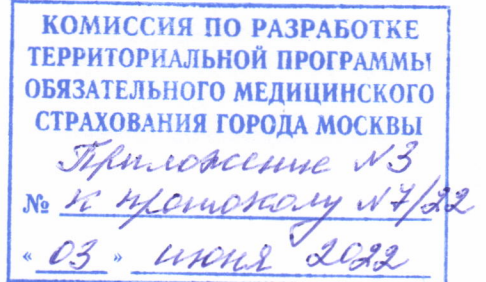 КОМИССИЯ ПО РАЗРАБОТКЕ
ТЕРРИТОРИАЛЬНОЙ ПРОГРАММЫ
ОБЯЗАТЕЛЬНОГО МЕДИЦИНСКОГО
СТРАХОВАНИЯ ГОРОДА МОСКВЫ
Приложение №3
№ к протоколу №7/22
« 03 » июня 2022